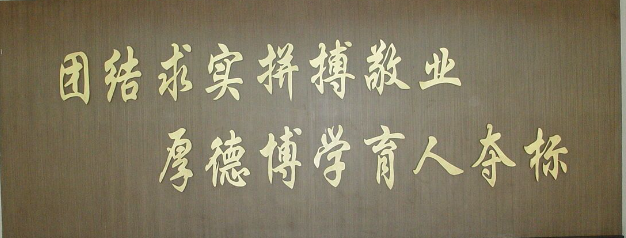 团结求实拼搏敬业
厚德博学育人夺标